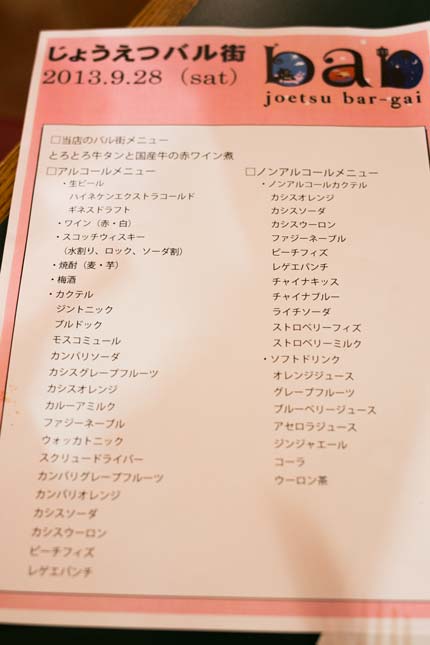 じょうえつバル街
2013.9.28 （sat）
bar
joetsu bar-gai
□当店のバル街メニュー
とろとろ牛タンと国産牛の赤ワイン煮
□アルコールメニュー
・生ビール
ハイネケンエクストラコールド
ギネスドラフト
・ワイン（赤・白）
・スコッチウィスキー
（水割り、ロック、ソーダ割）
・焼酎（麦・芋）
・梅酒
・カクテル
ジントニック
ブルドック
モスコミュール
カンパリソーダ
カシスグレープフルーツ
カシスオレンジ
カルーアミルク
ファジーネーブル
ウォッカトニック
スクリュードライバー
カンパリグレープフルーツ
カンパリオレンジ
カシスソーダ
カシスウーロン
ピーチフィズ
レゲエパンチ
□ノンアルコールメニュー
・ノンアルコールカクテル
カシスオレンジ
カシスソーダ
カシスウーロン
ファジーネーブル
ピーチフィズ
レゲエパンチ
チャイナキッス
チャイナブルー
ライチソーダ
ストロベリーフィズ
ストロベリーミルク
・ソフトドリンク
オレンジジュース
グレープフルーツ
ブルーベリージュース
アセロラジュース
ジンジャエール
コーラ
ウーロン茶